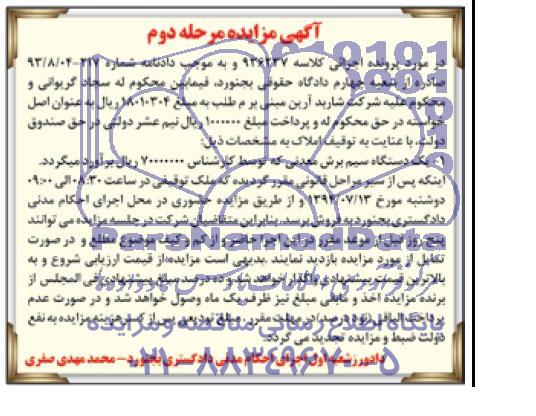 آگهی مزایده مرحله دوم
در مورد پرونده اجرائی کلاسه ۹۳۶۲۳۷ و به موجب دادنامه شماره ۲۱۷-۹۳/۸/۰۴
صادره از شعبه چهارم دادگاه حقوقی بجنورد، فیمابین محکوم له سجاد گریوانی و
محکوم علیه شرکت شارید آرین مبنی بر م طلب به مبلغ ۱۸۰۱۰۳۰۴ ریال به عنوان اصل
خواسته در حق محکوم له و پرداخت مبلغ ۱۰۰۰۰۰۰ ریال نیم عشر دولتی در حق صندوق
دولت، با عنایت به توقیف املاک به مشخصات ذیل:
۱- یک دستگاه سیم برش معدنی که توسط کارشناس ۷۰۰۰۰۰۰۰ ریال برآورد میگردد.
اینکه پس از سیر مراحل قانونی مقرر گردیده که ملک توقیفی در ساعت ۰۸:۳۰ الی ۰۹:۰۰
دوشنبه مورخ ۱۳۹۴/۰۷/۱۳ و از طریق مزایده حضوری در محل اجرای احکام مدنی
دادگستری بجنورد به فروش برسد. بنابراین متقاضیان شرکت در جلسه مزایده می توانند
پنج روز قبل از موعد مقرر در این اجرا حاضر و از کم و کیف موضوع مطلع و در صورت
تمایل از مورد مزایده بازدید نمایند. بدیهی است مزایده از قیمت ارزیابی شروع و به
بالاترین قیمت پیشنهادی واگذار خواهد شد و ده درصد مبلغ پیشنهادی فی المجلس از
برنده مزایده اخذ و مابقی مبلغ نیز ظرف یک ماه وصول خواهد شد و در صورت عدم
پرداخت الباقی (نود درصد) در مهلت مقرر، مبلغ تودیعی پس از کسر هزینه مزایده به نفع
دولت ضبط و مزایده تجدید می گردد.
دادورز شعبه اول اجرای احکام مدنی دادگستری بجنورد - محمد مهدی صفری
ParsNamadData
پایگاه اطلاع رسانی مناقصه و مزایده
۰۲۱-۸۸۳۴۹۶۷۰-۵